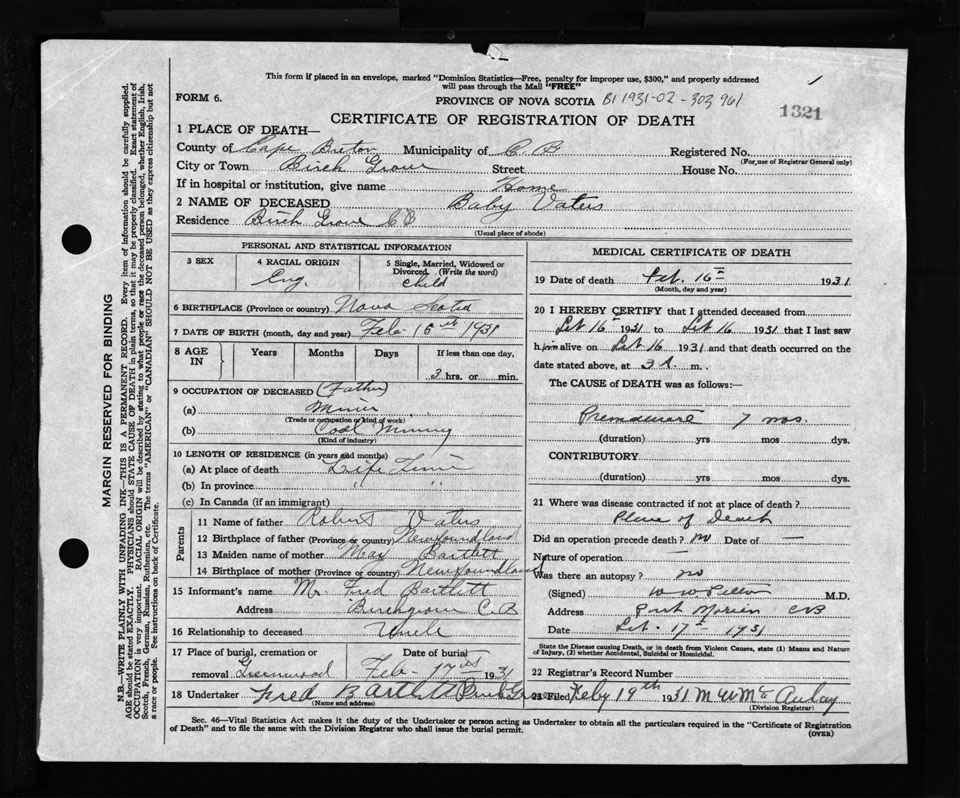 This form if placed in an envelope, marked "Dominion Statistics—Free, penalty for improper use, $300," and properly addressed
will pass through the Mail "FREE"
FORM 6.
PROVINCE OF NOVA SCOTIA B1 1931-02-303961
1321
CERTIFICATE OF REGISTRATION OF DEATH
1 PLACE OF DEATH—
County of Cape Breton Municipality of C. B Registered No.
(For use of Registrar General only)
City or Town Birch Grove Street House No.
If in hospital or institution, give name Home
2 NAME OF DECEASED Baby Vaters
Residence Birch Grove CB
(Usual place of abode)
PERSONAL AND STATISTICAL INFORMATION
3 SEX
4 RACIAL ORIGIN
Eng.
5 Single, Married, Widowed or
Divorced. (Write the word)
child
6 BIRTHPLACE (Province or country) Nova Scotia
7 DATE OF BIRTH (month, day and year) Feb 15th 1931
8 AGE IN
Years Months Days If less than one day,
3 hrs. or min.
9 OCCUPATION OF DECEASED (Father)
(a) Miner
(Trade or occupation or kind of work)
(b) Coal Mining
(Kind of industry)
10 LENGTH OF RESIDENCE (in years and months)
(a) At place of death Life Time
(b) In province " "
(c) In Canada (if an immigrant)
Parents
11 Name of father Robert Vaters
12 Birthplace of father (Province or country) Newfoundland
13 Maiden name of mother May Bartlett
14 Birthplace of mother (Province or country) Newfoundland
15 Informant's name Mr. Fred Bartlett
Address Birchgrove C.B
16 Relationship to deceased Uncle
17 Place of burial, cremation or
removal Greenwood
Date of burial
Feb 17th 1931
18 Undertaker Fred Bartlett
(Name and address)
MEDICAL CERTIFICATE OF DEATH
19 Date of death Feb. 16th 1931
(Month, day and year)
20 I HEREBY CERTIFY that I attended deceased from
Feb 16 1931 to Feb 16 1931 that I last saw
him alive on Feb 16 1931 and that death occurred on the
date stated above, at 3 a. m.
The CAUSE of DEATH was as follows:
Premature 7 mos.
(duration) yrs mos dys.
CONTRIBUTORY
(duration) yrs mos dys.
21 Where was disease contracted if not at place of death?
Place of Death
Did an operation precede death? no Date of —
Nature of operation —
Was there an autopsy? no
(Signed) M.D.
Address Port Morien CB
Date Feb. 17th 1931
State the Disease causing Death, or in death from Violent Causes, state (1) Means and Nature
of Injury, (2) whether Accidental, Suicidal or Homicidal.
22 Registrar's Record Number
23 Filed Feby 19th 1931 McAulay
(Division Registrar)
Sec. 46—Vital Statistics Act makes it the duty of the Undertaker or person acting as Undertaker to obtain all the particulars required in the "Certificate of Registration
of Death" and to file the same with the Division Registrar who shall issue the burial permit.
(OVER)
MARGIN RESERVED FOR BINDING
N.B.—WRITE PLAINLY WITH UNFADING INK—THIS IS A PERMANENT RECORD. Every item of information should be carefully supplied.
AGE should be stated EXACTLY. PHYSICIANS should STATE CAUSE OF DEATH in plain terms, so that it may be properly classified. Exact statement of
OCCUPATION is very important. RACIAL ORIGIN will be described by stating to what people or race the deceased person belonged, whether English, Irish,
Scotch, French, German, Russian, Ruthenian, etc. The terms "AMERICAN" or "CANADIAN" SHOULD NOT BE USED as they express citizenship but not
a race or people. See instructions on back of Certificate.